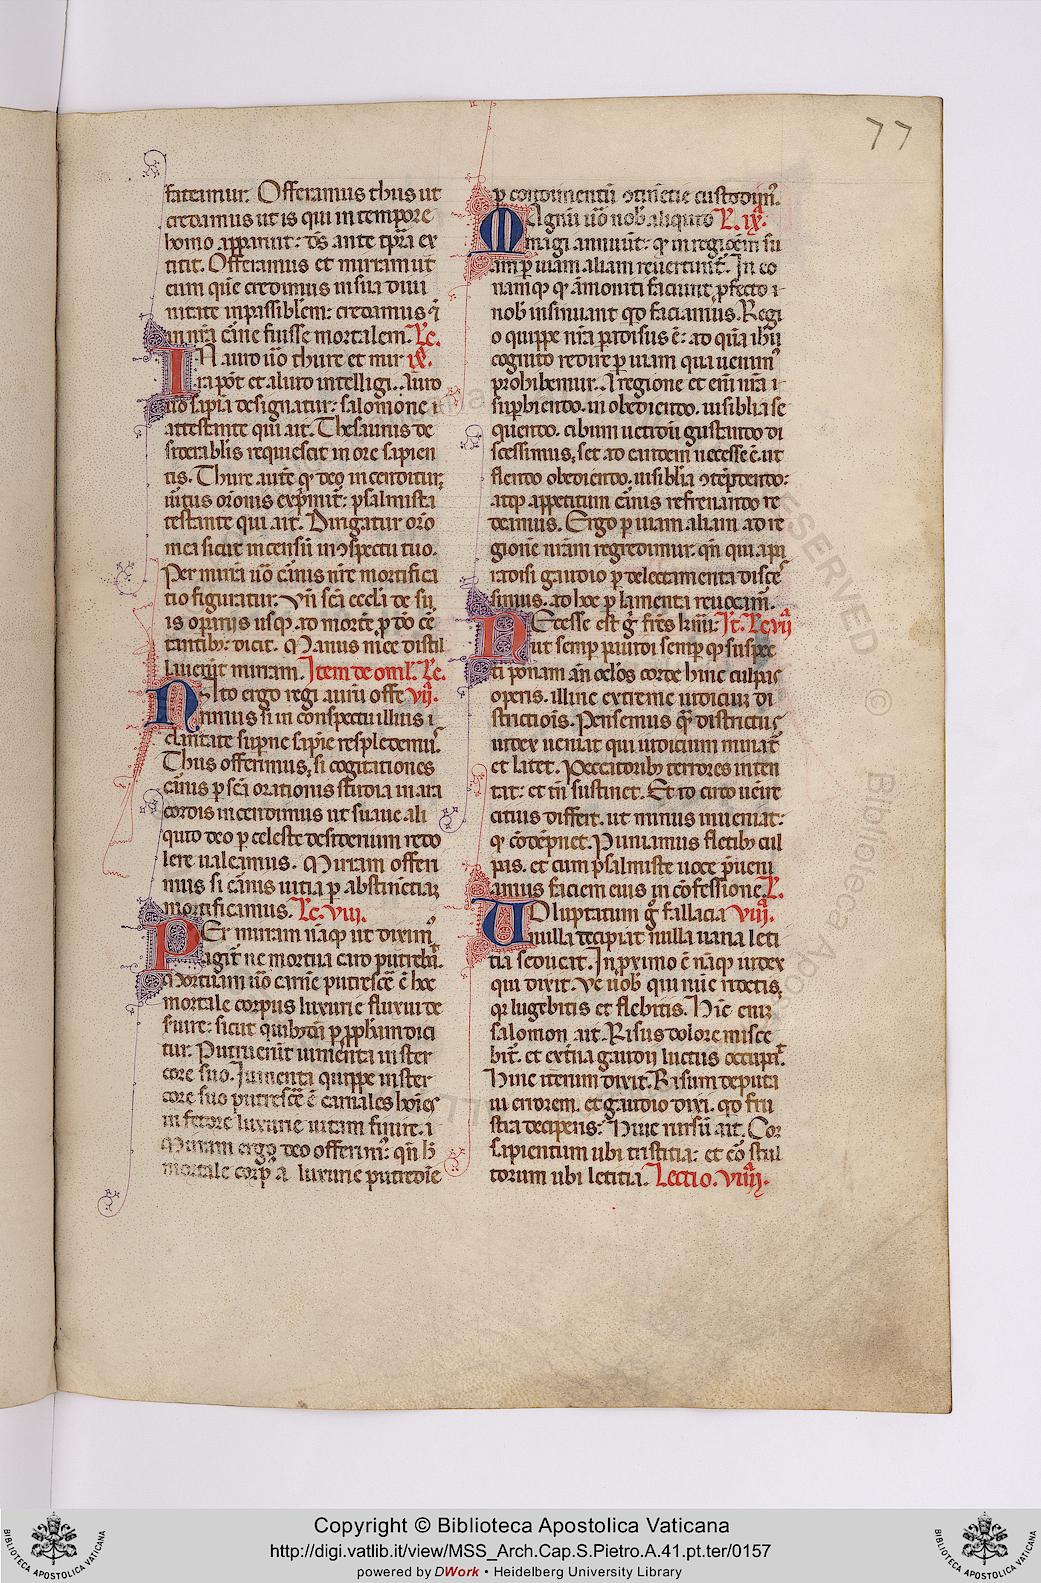 77
fateamur. Offeramus thus ut
credamus ut is qui in tempore
homo apparuit: ds̄ ante tp̄ra ex
titit. Offeramus et mirram ut
eum quē credimus in sua diui
nitate inpassiblem: credamus ī
in nr̄a carne fuisse mortalem. Lc.
IN auro uo thure et mir ix.
ra pōt et aliud intelligi. Auro
uo sapia designatur: salomone
attestante qui ait. Thesaurus de
siderabilis requiescit in ore sapien
tis. Thure autē qd deo incenditur
uirtus orōnis exprimit: psalmista
testante qui ait. Dirigatur orō
mea sicut incensū in ɔspectu tuo.
Per mirrā uo carnis nr̄e mortifica
tio figuratur. Vn̄ scā eccla de su
is opariis usq ad mortē p dō cer
tantib: dicit. Manus mee distil
lauerūt mirram. Item de omel. Lc.
NAto ergo regi aurū offe vii.
rimus si in conspectu illius
claritate supne sapie respledemus.
Thus offerimus, si cogitationes
carnis p scā orationis studia in ara
cordis incendimus ut suaue ali
quid deo p celeste desiderium redo
lere ualeamus. Mirram offeri
mus si carnis uitia p abstinētiā
mortificamus. Lc. viii.
PEr mirram nāq ut diximus
agit ne mortua caro putrefiat.
Mortuam uo carnē putrescē ē hoc
mortale corpus luxurie fluxui de
seruire: sicut quibdā p pphām dici
tur. Putruerūt iumenta in ster
core suo. Iumenta quippe in ster
core suo putrescē ē carnales hoīes
in fetore luxurie uitam finire.
Mirram ergo deo offerim: qn̄ h
mortale corp a luxurie putredīe
p condimentū ɔtinētie custodim.
MAgnū uo nob aliquid L. ix.
magi annuūt: qd in regiōem su
am p uiam aliam reuertunt. In eo
namq qd amoniti faciunt pfecto
nob insinuant qd faciamus. Regi
o quippe nr̄a paradisus ē: ad quā ihū
cognito redire p uiam qua uenim
prohibemur. A regione et enī nr̄a
supbiendo. in obediendo. uisiblia se
quendo. cibum uetitū gustando di
scessimus, set ad eandem necesse ē. ut
flendo obediendo, uisiblia ɔtēpnendo:
atq appetitum carnis refrenando re
deamus. Ergo p uiam aliam ad re
gionē nr̄am regredimur. qn̄ qui a pa
radisi gaudio p delectamenta disces
simus. ad hoc p lamenta reuocam.
NEcesse est g fr̄es kmi: It. Lc vii
ut semp pauidi semp q suspec
ti ponam an̄ oclos cordis hinc culpas
operis. illinc extreme iudicium di
strictiois. Pensemus q districtus
iudex ueniat qui iudicium minat
et latet. Peccatorib terrores inten
tat: et tn̄ sustinet. Et iō cito uenire
citius differt. ut minus inueniat:
q cōdēpnet. Puniamus fletib cul
pas. et cum psalmiste uoce pueni
amus faciem eius in cōfessione. L.
UOluptatum g fallacia viii.
nulla decipiat nulla uana leti
tia seducat. In pximo ē nāq iudex
qui dixit. Ve uob qui nūc ridetis
qr lugebitis et flebitis. Hinc eni
salomon ait. Risus dolore misce
bit. et extrema gaudii luctus occupat.
Hinc iterum dixit. Risum deputa
ui errorem. et gaudio dixi. qd fru
stra decipens: Hinc rursū ait. Cor
sapientum ubi tristitia: et cor stul
torum ubi letitia. Lectio. viiii.
Copyright © Biblioteca Apostolica Vaticana
http://digi.vatlib.it/view/MSS_Arch.Cap.S.Pietro.A.41.pt.ter/0157
powered by DWork • Heidelberg University Library
BIBLIOTECA APOSTOLICA VATICANA
BIBLIOTECA APOSTOLICA VATICANA